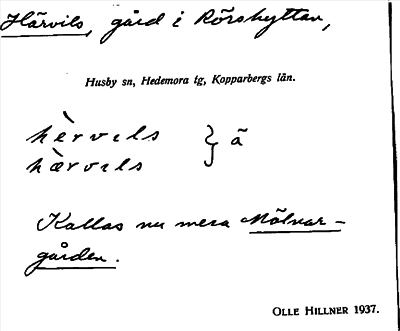 Härvils, gård i Rörshyttan,
Husby sn, Hedemora tg, Kopparbergs län.
hèrvɩls } ä
hæ̀rvɩls
Kallas nu mera Mölnar-
gården.
OLLE HILLNER 1937.